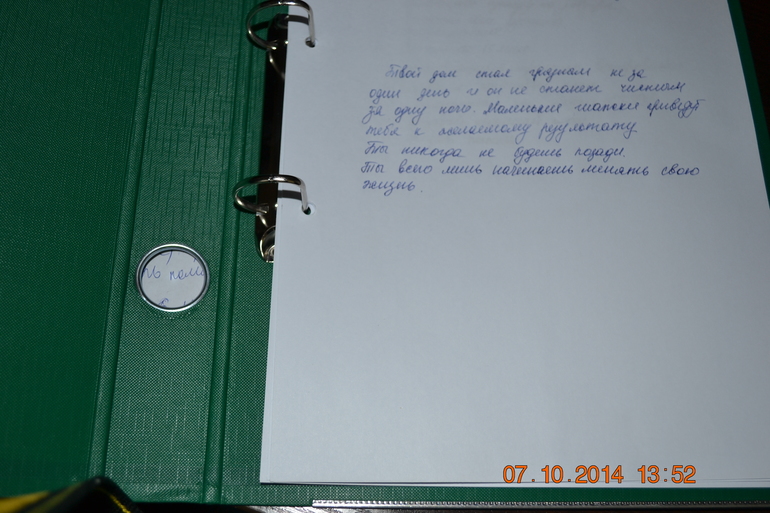 Твой дом стал грязным не за
один день и он не станет чистым
за одну ночь. Маленькие шажки приведут
тебя к желаемому результату.
Ты никогда не будешь позади.
Ты всего лишь начинаешь менять свою
жизнь.
07.10.2014 13:52